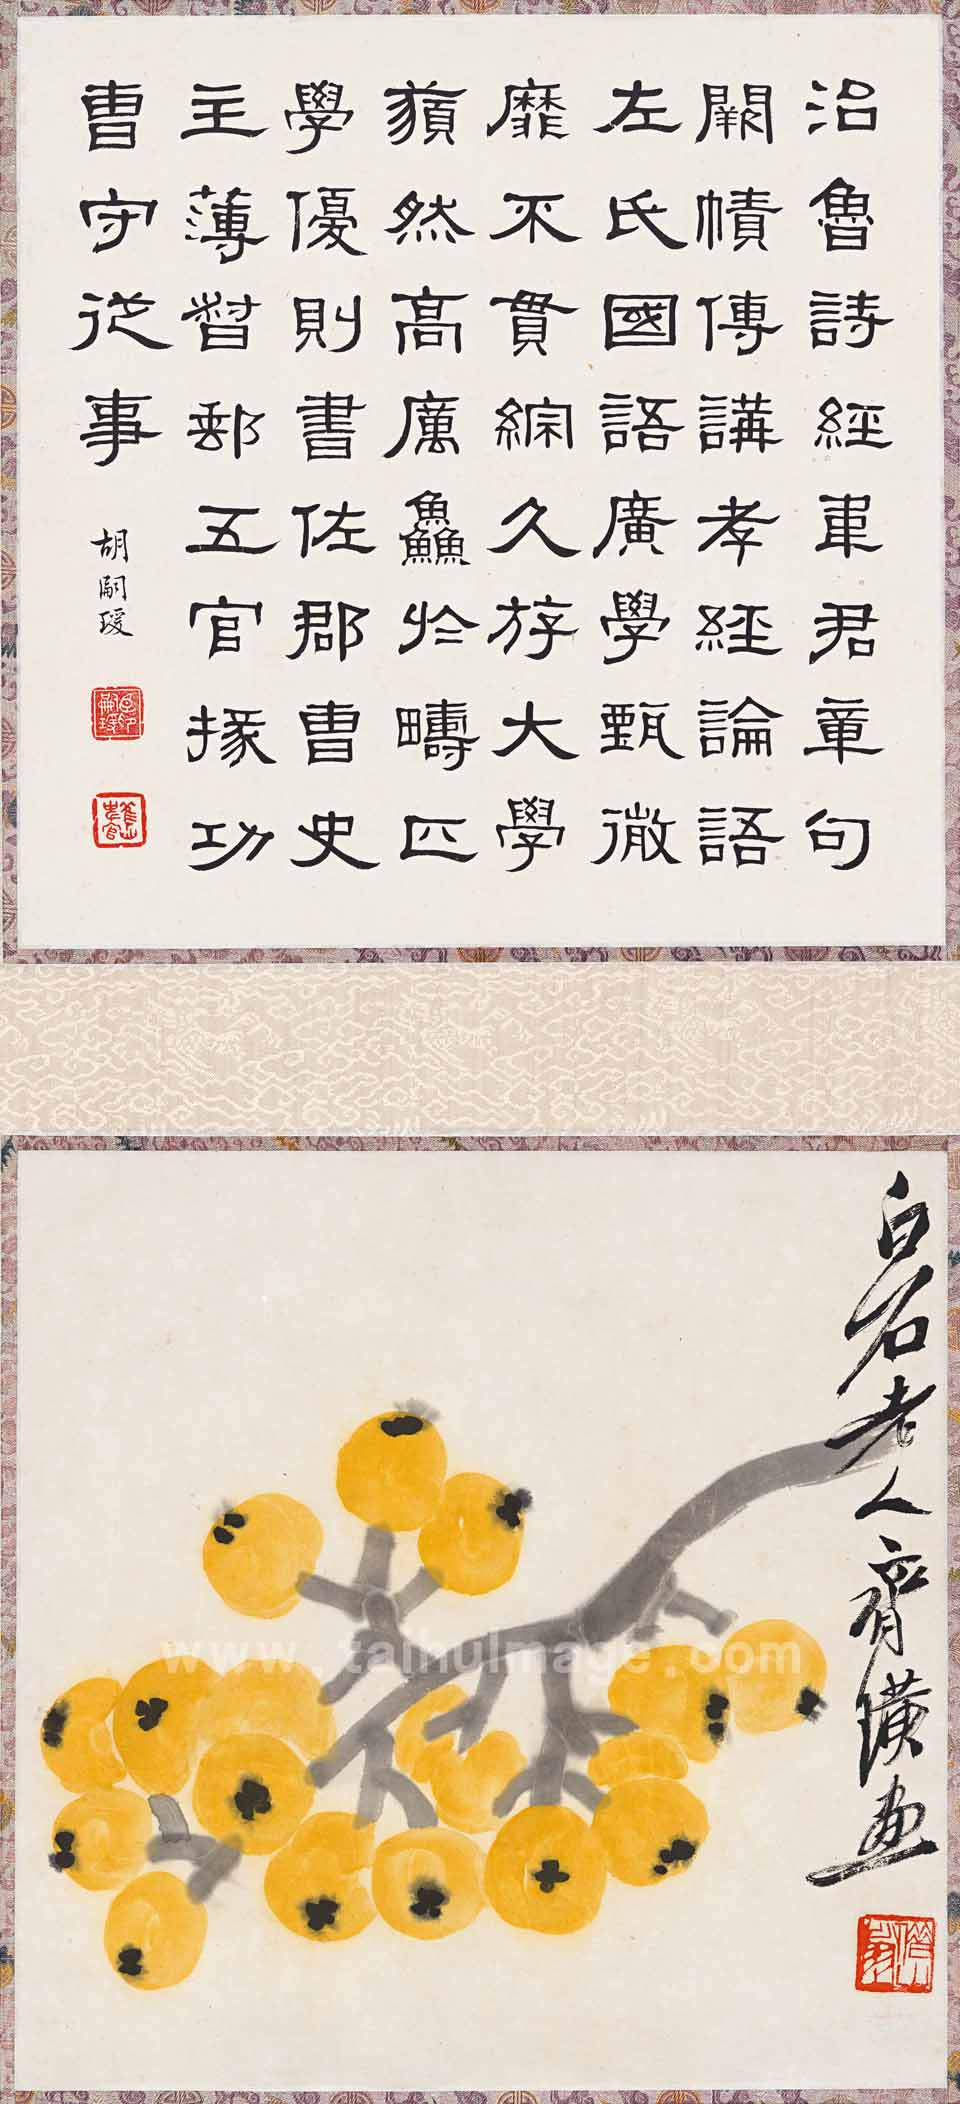 治魯詩經韋君章句
闕幘傳講孝經論語
左氏國語廣學甄微
靡不貫綜久斿大學
藐然高厲鱻於疇匹
學優則書佐郡曹史
主薄督郵五官掾功
曹守從事
胡嗣瑗
白石老人齊璜畫
www.taihuimage.com